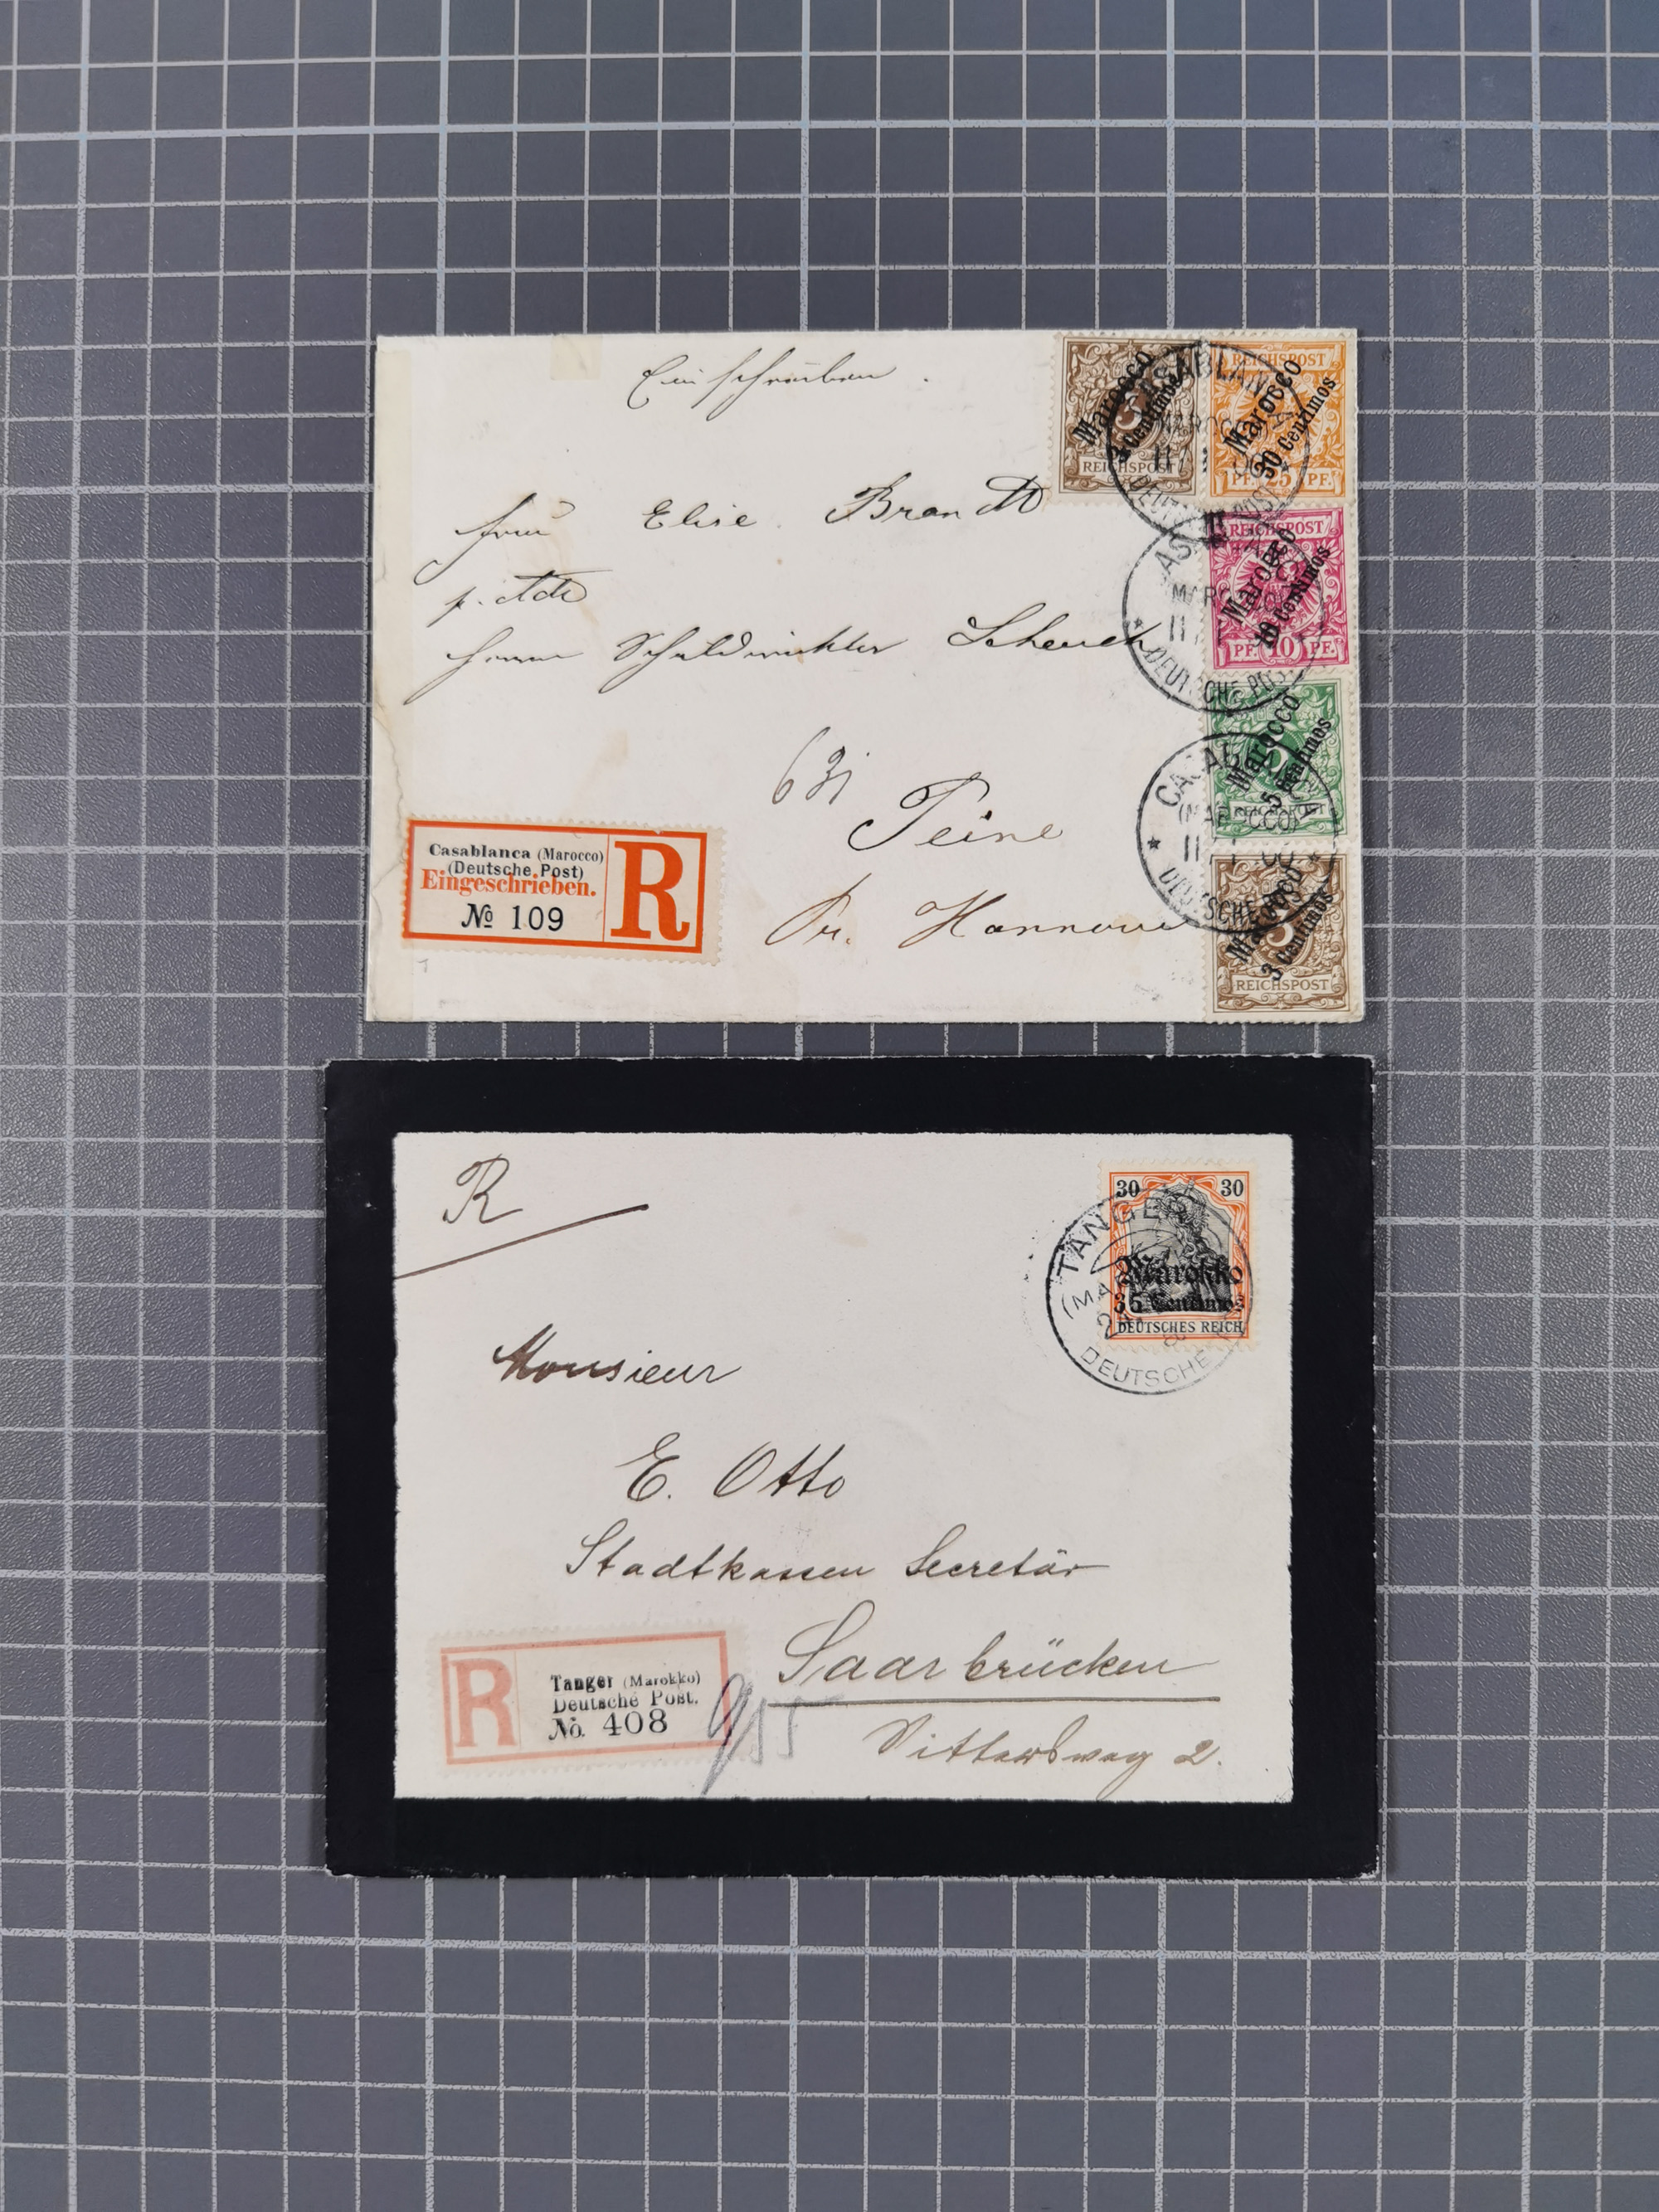 Einschreiben.
Frau Elise Brandt
p. Adr
Herrn Scheuch
631
Peine
Pr. Hannover
Casablanca (Marocco)
(Deutsche Post)
Eingeschrieben.
№ 109
R
Marocco
3 Centimos
REICHSPOST
REICHSPOST
Marocco
30 Centimos
PF. 25 PF.
REICHSPOST
Marocco
10 Centimos
PF. 10 PF.
Marocco
5 Centimos
REICHSPOST
Marocco
3 Centimos
REICHSPOST
CASABLANCA
(MAROCCO)
DEUTSCHE POST
CASABLANCA
MAROCCO
DEUTSCHE POST
CASABLANCA
(MAROCCO)
DEUTSCHE POST
R
30 30
Marokko
35 Centimos
DEUTSCHES REICH
TANGER
DEUTSCHE
Monsieur
E. Otto
Stadtkassen Secretär
Saarbrücken
2.
R
Tanger (Marokko)
Deutsche Post.
No. 408
955